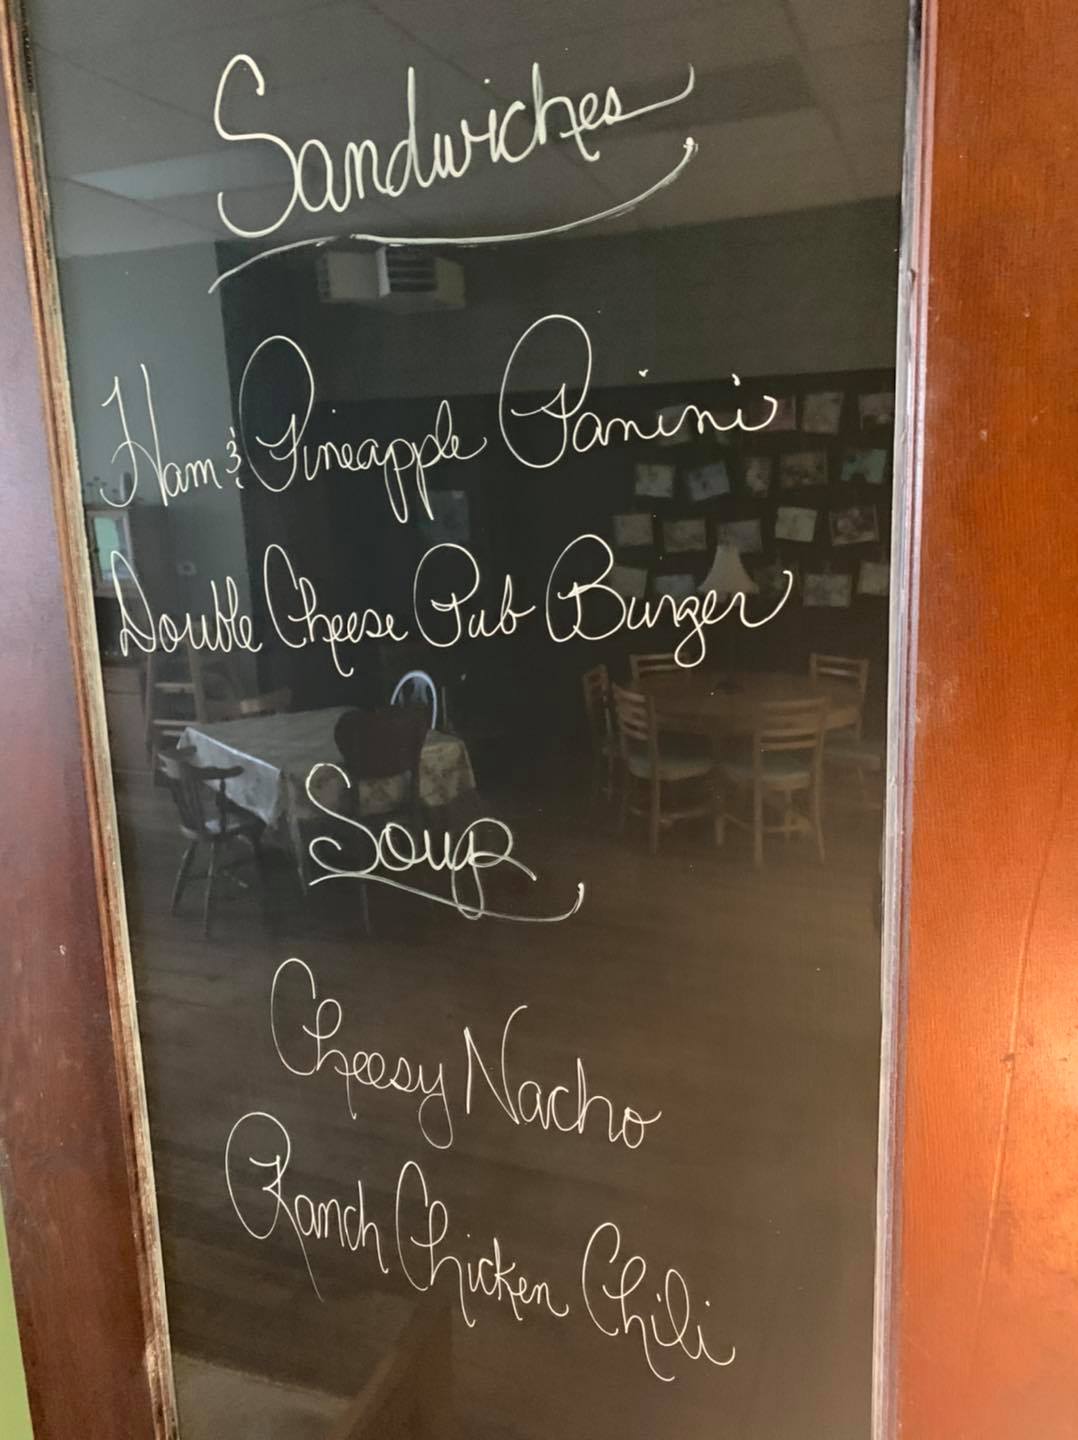 Sandwiches
Ham & Pineapple Panini
Double Cheese Pub Burger
Soup
Cheesy Nacho
Ranch Chicken Chili